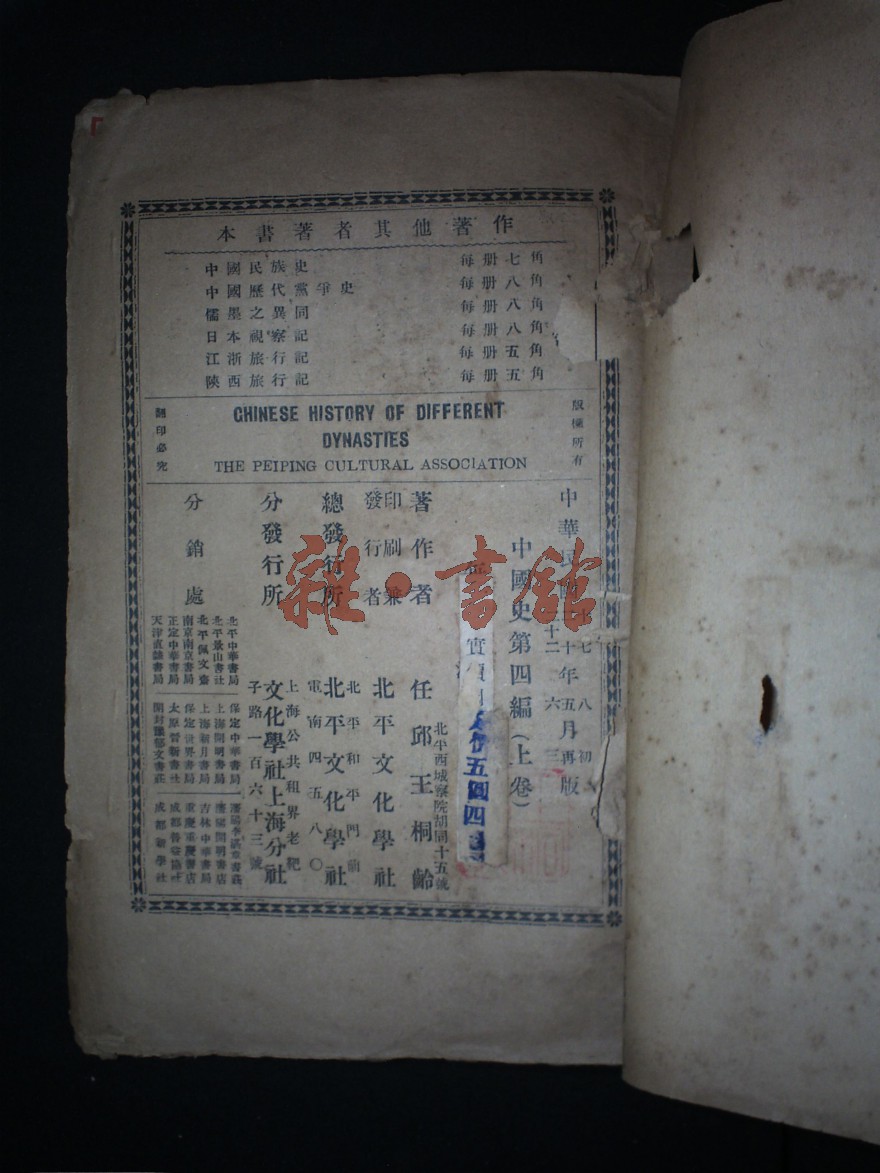 本書著者其他著作
中國民族史 每册七角
中國歷代黨爭史 每册八角
儒墨之異同 每册八角
日本視察記 每册八角
江浙旅行記 每册五角
陝西旅行記 每册五角
版權所有
CHINESE HISTORY OF DIFFERENT
DYNASTIES
THE PEIPING CULTURAL ASSOCIATION
翻印必究
中華民國
十七 八 初
二十年五月再版
二十二 六 三
中國史第四編（上卷）
實價
價五圓四
北平西城察院胡同十五號
著作者 任邱王桐齡
印刷兼發行者 北平文化學社
北平和平門前
總發行所 北平文化學社
電南四五八〇
上海公共租界老靶
分發行所 文化學社上海分社
子路一百六十三號
分銷處
北平中華書局
北平景山書社
北平佩文齋
南京南京書局
正定中華書局
天津直隸書局
保定中華書局
上海開明書局
上海新月書局
保定世界書局
太原晉新書社
開封
重慶重慶書店
吉林中華書局
成都
雜·書館